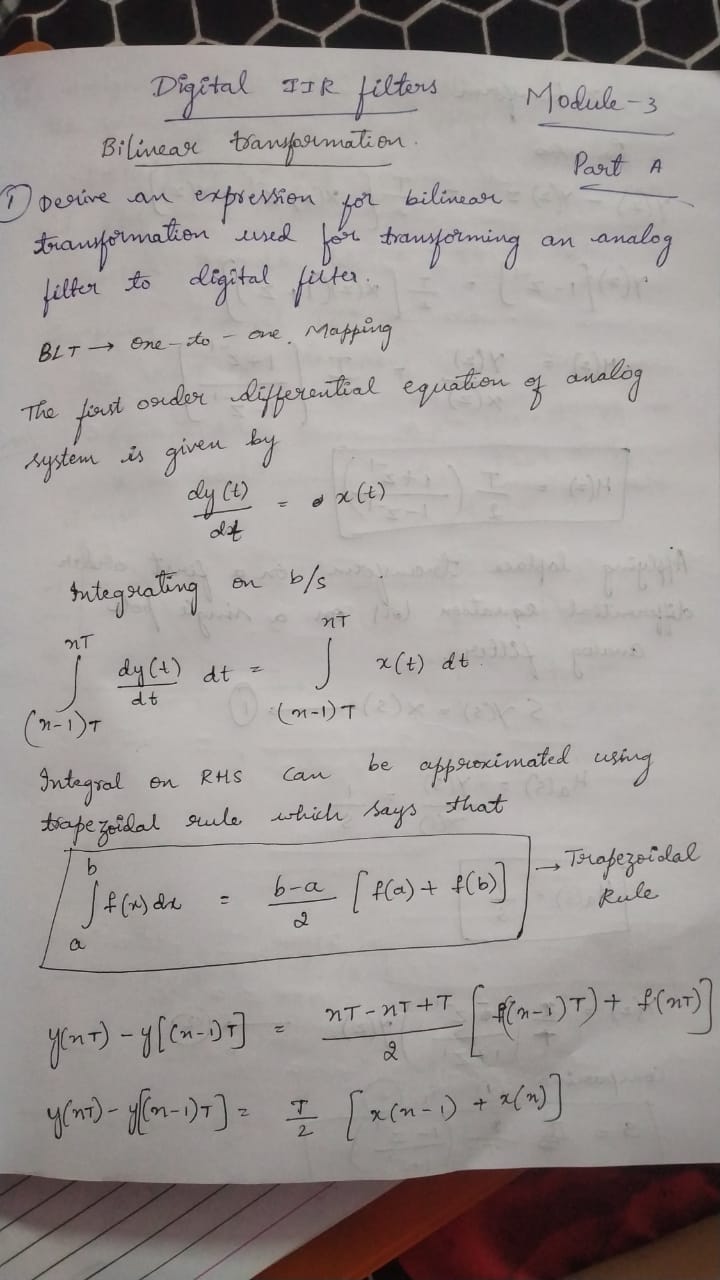 Digital IIR filters
Module-3
Bilinear transformation.
Part A
① Derive an expression for bilinear
transformation used for transforming an analog
filter to digital filter.
BLT → One-to-one. Mapping
The first order differential equation of analog
system is given by
dy(t)/dt = x(t)
Integrating on b/s
∫_{(n-1)T}^{nT} dy(t)/dt dt = ∫_{(n-1)T}^{nT} x(t) dt.
Integral on RHS can be approximated using
trapezoidal rule which says that
∫_a^b f(x)dx = b-a/2 [f(a) + f(b)] → Trapezoidal
Rule
y(nT) - y[(n-1)T] = nT-nT+T/2 [f(n-1)T) + f(nT)]
y(nT) - y[(n-1)T] = T/2 [x(n-1) + x(n)]